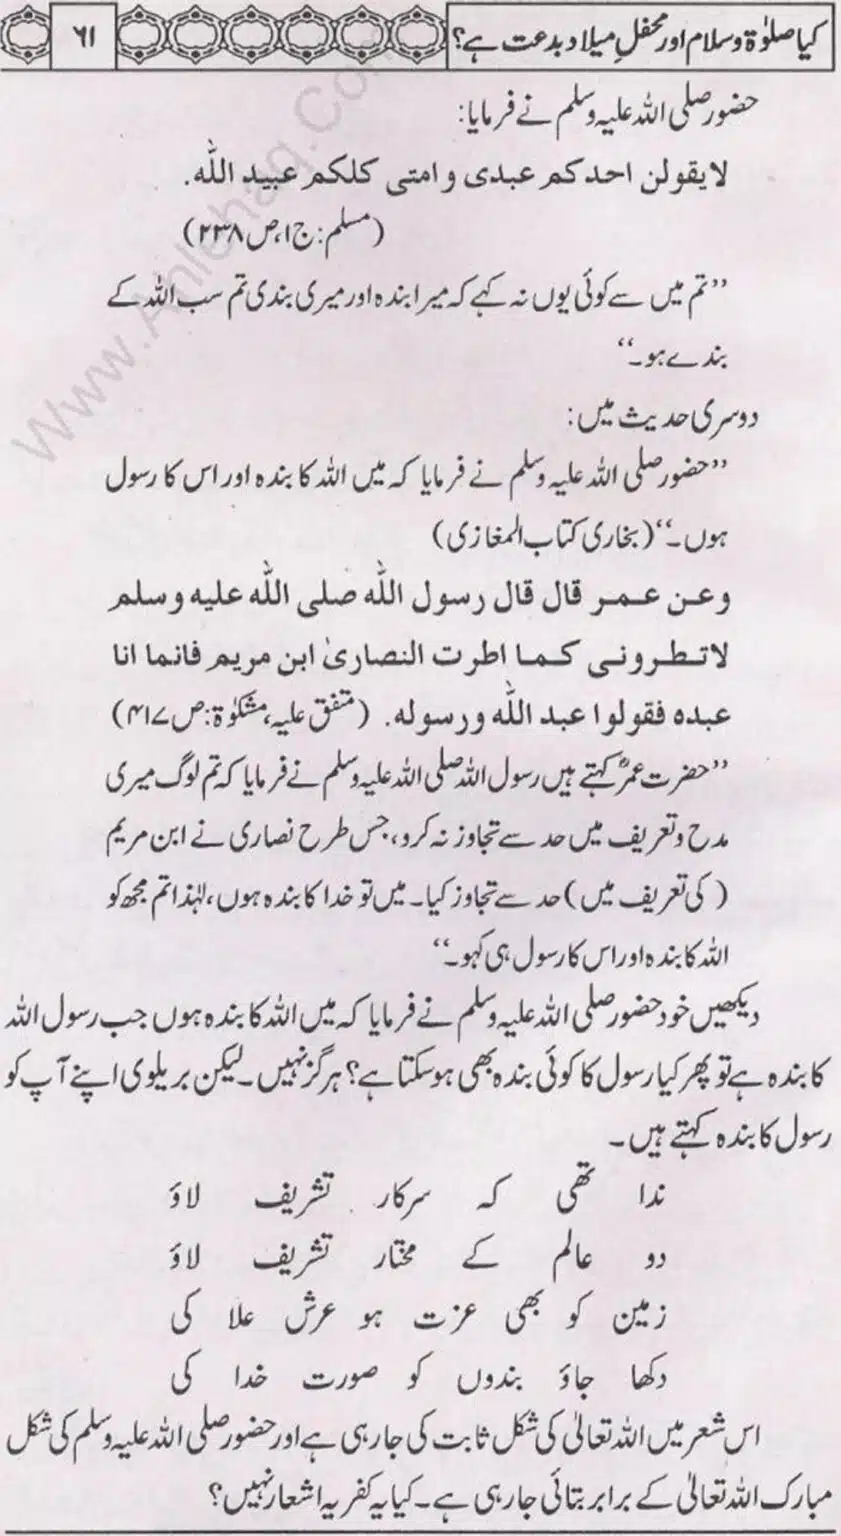 کیا صلوٰۃ وسلام اور محفلِ میلاد بدعت ہے؟
۶۱
حضور صلی اللہ علیہ وسلم نے فرمایا:
لا یقولن احدکم عبدی و امتی کلکم عبید اللہ.
(مسلم: ج۱، ص۲۳۸)
’’تم میں سے کوئی یوں نہ کہے کہ میرا بندہ اور میری بندی تم سب اللہ کے
بندے ہو۔‘‘
دوسری حدیث میں:
’’حضور صلی اللہ علیہ وسلم نے فرمایا کہ میں اللہ کا بندہ اور اس کا رسول
ہوں۔‘‘ (بخاری کتاب المغازی)
وعن عمر قال قال رسول اللہ صلی اللہ علیہ وسلم
لا تطرونی کما اطرت النصاریٰ ابن مریم فانما انا
عبدہ فقولوا عبد اللہ ورسولہ. (متفق علیہ، مشکوٰۃ: ص۴۱۷)
’’حضرت عمرؓ کہتے ہیں رسول اللہ صلی اللہ علیہ وسلم نے فرمایا کہ تم لوگ میری
مدح و تعریف میں حد سے تجاوز نہ کرو، جس طرح نصاری نے ابن مریم
(کی تعریف میں) حد سے تجاوز کیا۔ میں تو خدا کا بندہ ہوں، لہٰذا تم مجھ کو
اللہ کا بندہ اور اس کا رسول ہی کہو۔‘‘
دیکھیں خود حضور صلی اللہ علیہ وسلم نے فرمایا کہ میں اللہ کا بندہ ہوں جب رسول اللہ
کا بندہ ہے تو پھر کیا رسول کا کوئی بندہ بھی ہوسکتا ہے؟ ہرگز نہیں۔ لیکن بریلوی اپنے آپ کو
رسول کا بندہ کہتے ہیں۔
ندا تھی کہ سرکار تشریف لاؤ
دو عالم کے مختار تشریف لاؤ
زمین کو بھی عزت ہو عرش علا کی
دکھا جاؤ بندوں کو صورت خدا کی
اس شعر میں اللہ تعالیٰ کی شکل ثابت کی جارہی ہے اور حضور صلی اللہ علیہ وسلم کی شکل
مبارک اللہ تعالیٰ کے برابر بتائی جارہی ہے۔ کیا یہ کفریہ اشعار نہیں؟
Www.Ahlehaq.Com